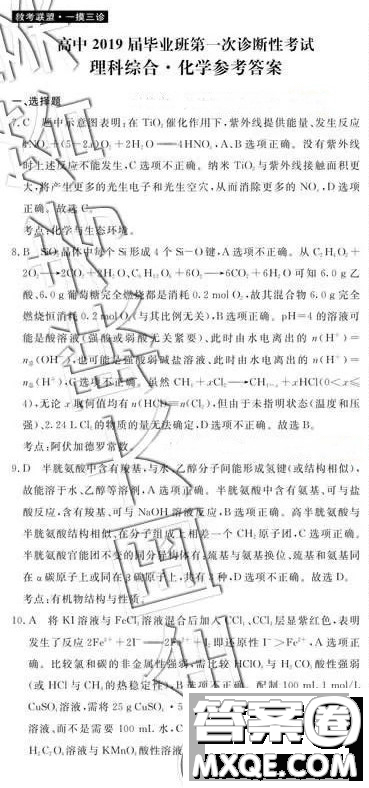 教考联盟·一摸三诊
高中 2019 届毕业班第一次诊断性考试
理科综合·化学参考答案
一、选择题
7.C 题中示意图表明:在 TiO₂ 催化作用下,紫外线提供能量、发生反应
4NOₓ+(5-2x)O₂+2H₂O 4HNO₃,A、B 选项正确。没有紫外线
时上述反应不能发生,C 选项不正确。纳米 TiO₂ 与紫外线接触面积更
大,将产生更多的光生电子和光生空穴,从而消除更多的 NOₓ,D 选项
正确。故选 C。
考点:化学与生态环境。
8.B SiO₂ 晶体中每个 Si 形成 4 个 Si—O键,A 选项不正确。从 C₂H₄O₂+
2O₂→2CO₂+2H₂O、C₆H₁₂O₆+6O₂→6CO₂+6H₂O 可知 6.0 g 乙
酸、6.0 g 葡萄糖完全燃烧都是消耗 0.2 mol O₂,故其混合物 6.0 g 完全
燃烧恒消耗 0.2 mol O₂(与其比例无关),B选项正确。pH=4 的溶液可
能是酸溶液(强酸或弱酸无关紧要)、此时由水电离出的 n(H⁺)=
(OH⁻),也可能是强酸弱碱盐溶液、此时由水电离出的 n(H⁺)=
(H⁺),C 选项不正确。虽然 CH₄+xCl₂→CH₄₋ₓ+xHCl(0<x≤
4),无论 x 取何值均有 n(HCl)=n(Cl₂),但由于未指明状态(温度和压
强)、2.24 L Cl₂ 的物质的量无法确定,D 选项不正确。故选 B。
考点:阿伏加德罗常数。
9.D 半胱氨酸中含有羧基,与水、乙醇分子间能形成氢键(或结构相似),
故能溶于水、乙醇等溶剂,A 选项正确。半胱氨酸中含有氨基、可与盐
酸反应,含有羧基、可与 NaOH 溶液反应,B 选项正确。高半胱氨酸与
半胱氨酸结构相似、在分子组成上相差一个 CH₂ 原子团,C 选项正确。
半胱氨酸官能团不变的同分异构体有:巯基与氨基换位、巯基和氨基同
在 α 碳原子上或同在 β 碳原子上,共有 种,D 选项不正确。故选 D。
考点:有机物结构与性质。
10.A 将 KI 溶液与 FeCl₃ 溶液混合后加入 CCl₄、CCl₄ 层显紫红色,表明
发生了反应 2Fe³⁺+2I⁻ 2Fe²⁺+I₂,即还原性 I⁻>Fe²⁺,A 选项正
确。比较氯和碳的非金属性强弱,需比较 HClO₄ 与 H₂CO₃ 酸性强弱
(或 HCl 与 CH₄ 的热稳定性),B 选项不正确。配制 100 mL 1 mol/L
CuSO₄ 溶液,需将 25 g CuSO₄·5
溶液、而不是需要 100 mL 水,C
H₂C₂O₄ 溶液与 KMnO₄ 酸性溶液
答案圈
MXQE.COM